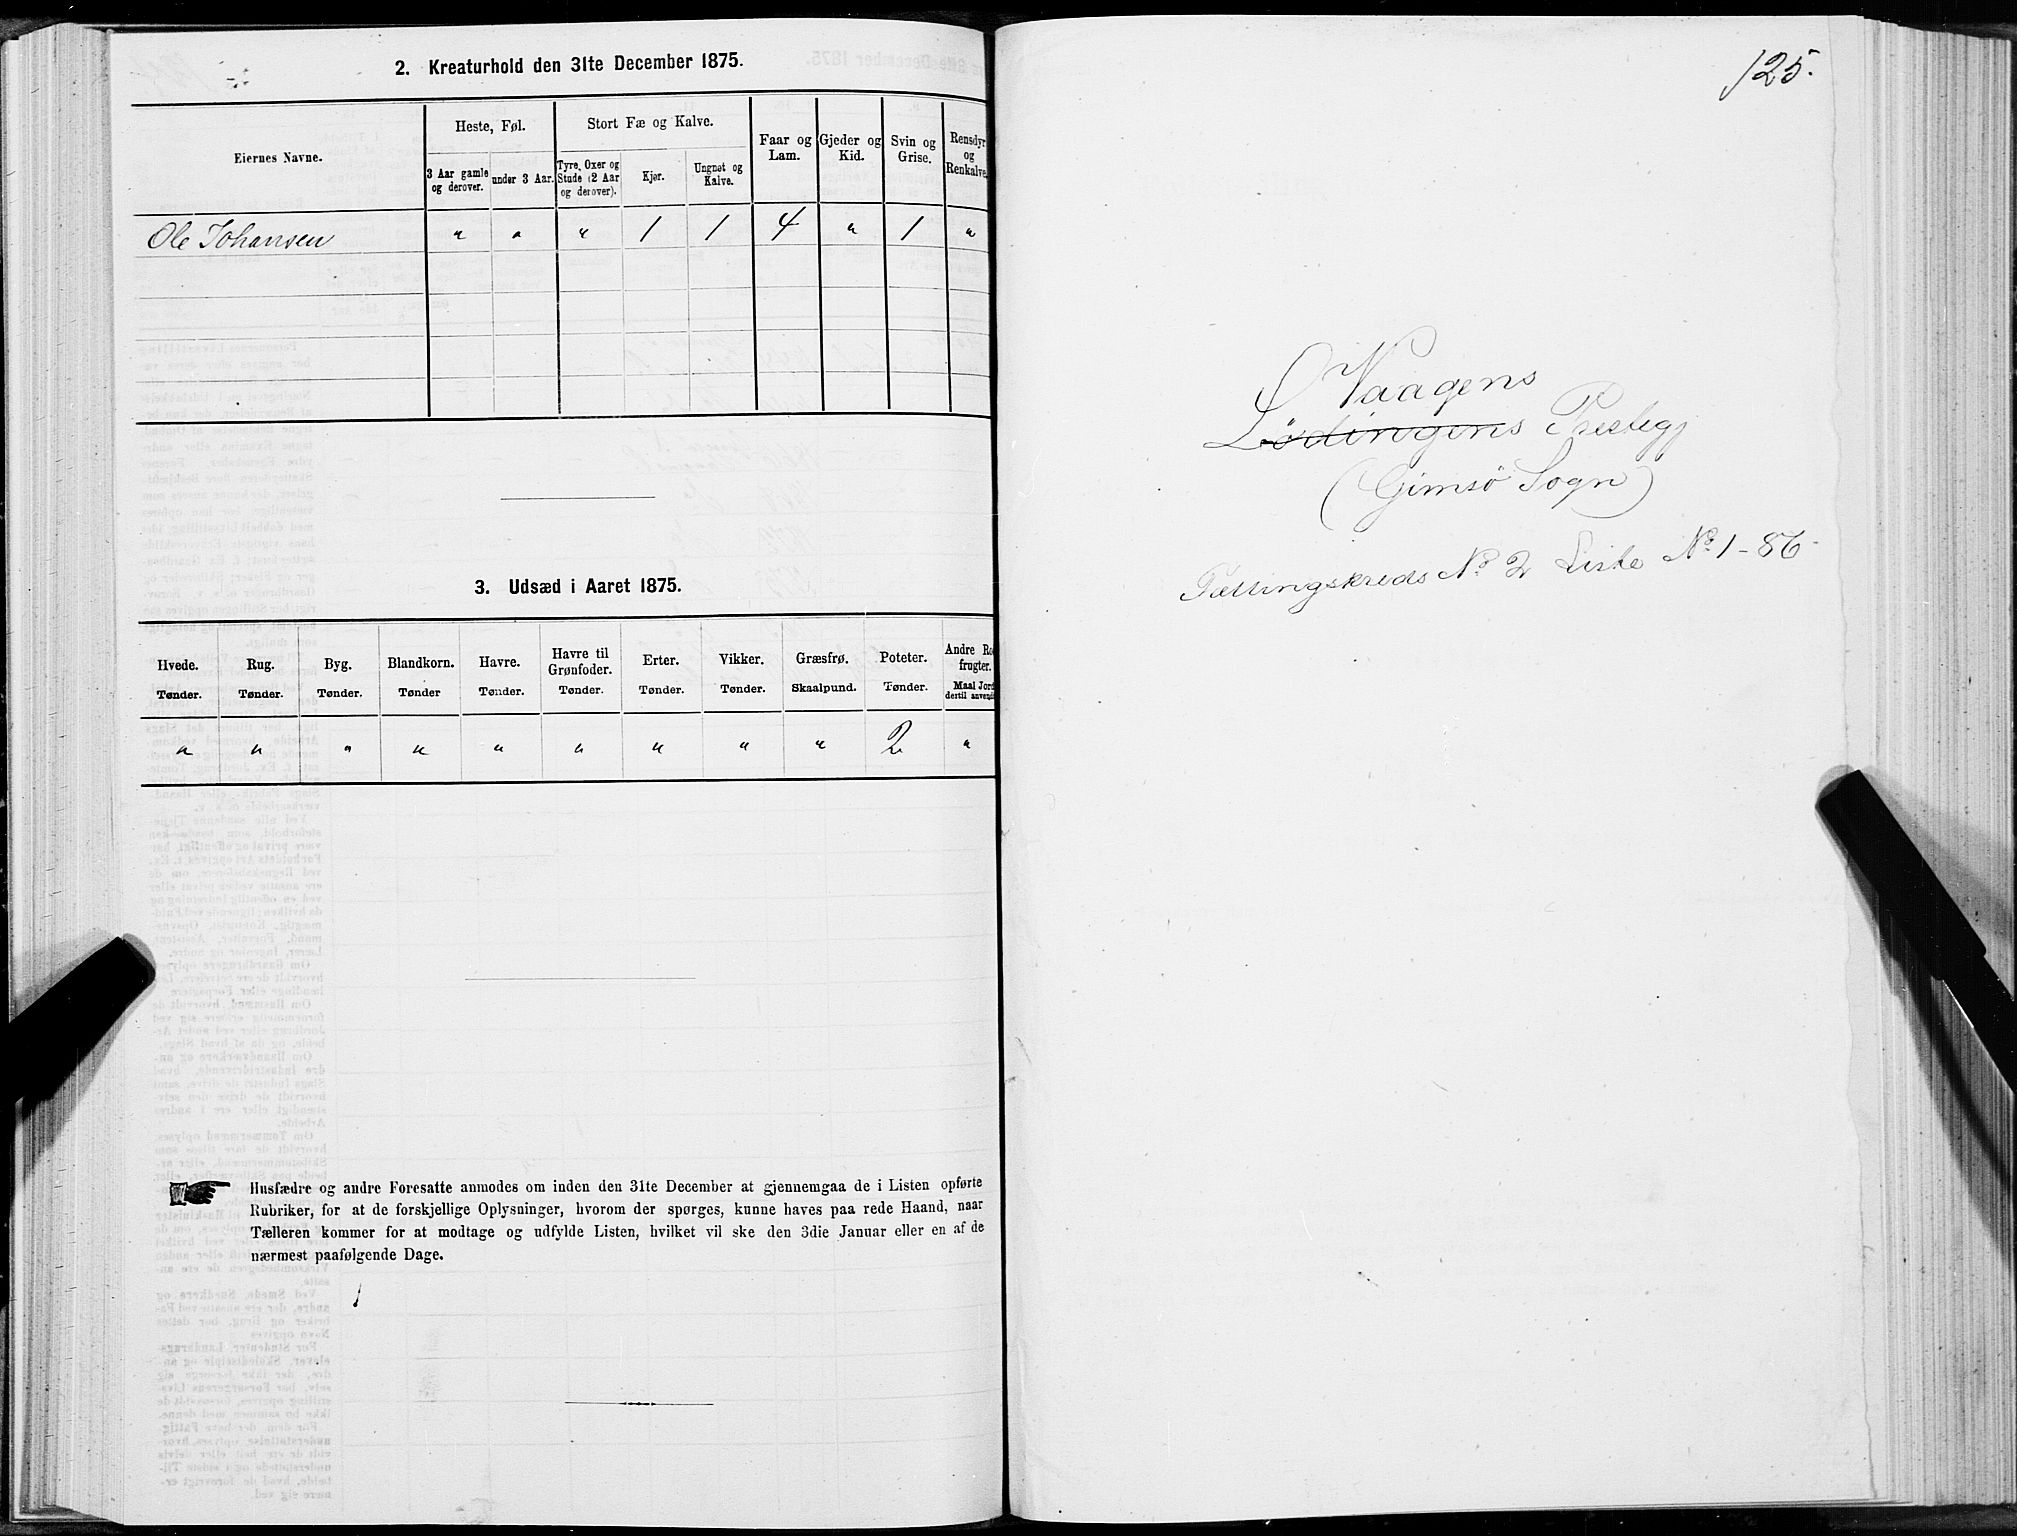 2. Kreaturhold den 31te December 1875.
Eiernes Navne.
Heste, Føl.
Stort Fæ og Kalve.
Faar og
Lam.
Gjeder og
Kid.
Svin og
Grise.
Rensdyr
og
Renkalve.
3 Aar gamle
og derover.
under 3 Aar.
Tyre, Oxer og
Stude (2 Aar
og derover).
Kjør.
Ungnøt og
Kalve.
Ole Johansen " " " 1 1 4 " 1 "
3. Udsæd i Aaret 1875.
Hvede.
Tønder.
Rug.
Tønder.
Byg.
Tønder.
Blandkorn.
Tønder
Havre.
Tønder.
Havre til
Grønfoder.
Tønder.
Erter.
Tønder.
Vikker.
Tønder.
Græsfrø.
Skaalpund.
Poteter.
Tønder.
Andre Ro
frugter.
Maal Jord
dertil anvendt
" " " " " " " " " 2 "
Husfædre og andre Foresatte anmodes om inden den 31te December at gjennemgaa de i Listen opførte
Rubriker, for at de forskjellige Oplysninger, hvorom der spørges, kunne haves paa rede Haand, naar
Tælleren kommer for at modtage og udfylde Listen, hvilket vil ske den 3die Januar eller en af de
nærmest paafølgende Dage.
125.
Vaagens
Lödingens Prestegj
(Gimsö Sogn)
Tællingskreds No. 2 Liste No. 1-86